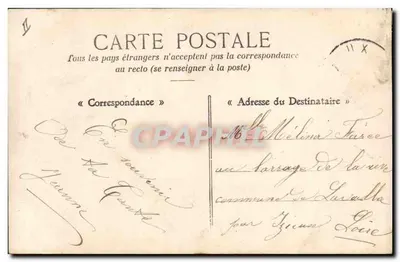 CARTE POSTALE
Tous les pays étrangers n'acceptent pas la correspondance
au recto (se renseigner à la poste)
« Correspondance »
« Adresse du Destinataire »
En souvenir
De ta Tante
CPARPHIL
Mélina
au barrage de la rive
commune de
par Izieux Loire